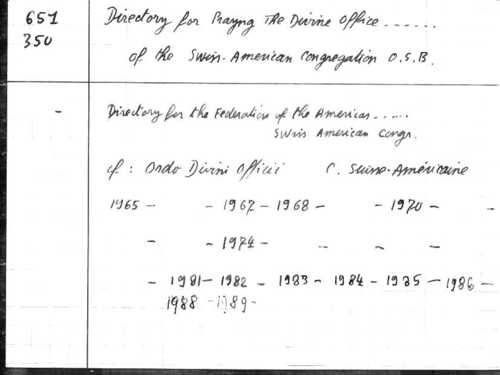 651
350
Directory for Praying The Divine Office .......
of the Swiss-American Congregation O.S.B.
- Directory for the Federation of the Americas .....
Swiss American Congr.
cf : Ordo Divini Officii C. Suisse-Américaine
1965 - - 1967 - 1968 - - 1970 - -
- - 1974 - - - -
- 1981 - 1982 - 1983 - 1984 - 1985 - 1986 -
1988 - 1989 -